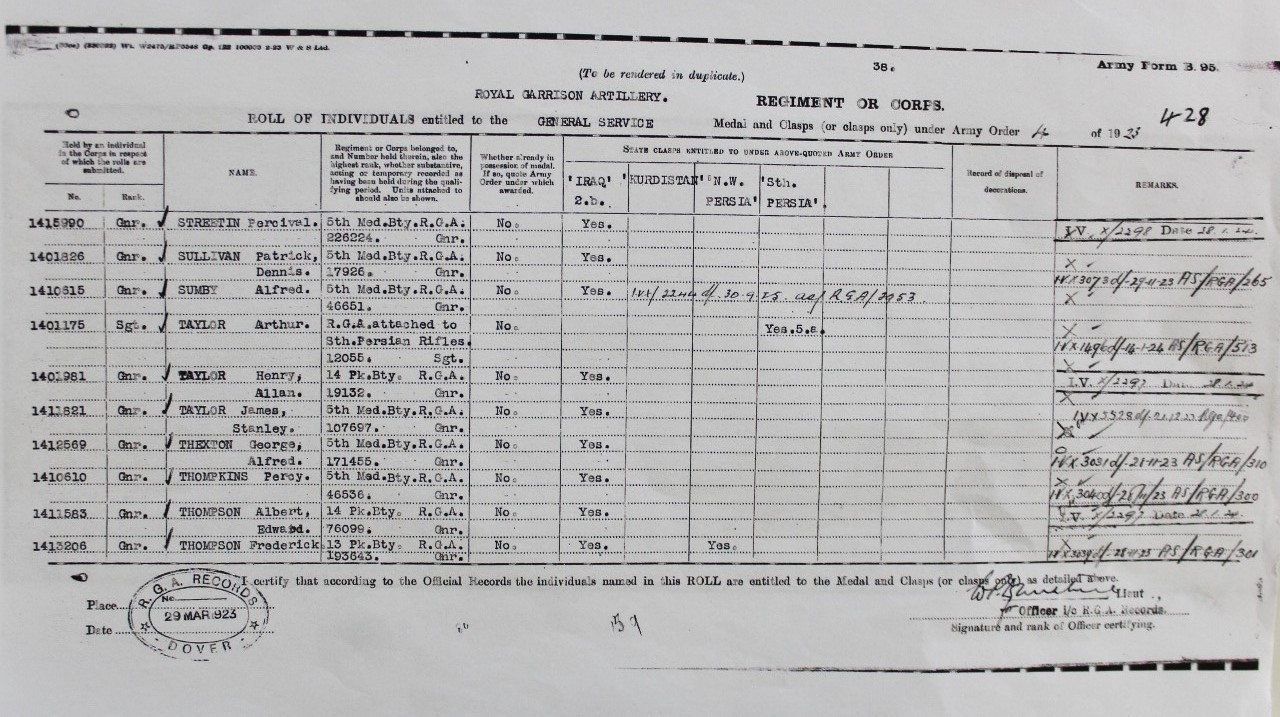 (To be rendered in duplicate.)
38.
Army Form B. 95.
ROYAL GARRISON ARTILLERY.
REGIMENT OR CORPS.
428
ROLL OF INDIVIDUALS entitled to the GENERAL SERVICE Medal and Clasps (or clasps only) under Army Order 4 of 1923
Held by an individual in the Corps in respect of which the rolls are submitted.
No. Rank.
NAME.
Regiment or Corps belonged to, and Number held therein, also the highest rank, whether substantive, acting or temporary recorded as having been held during the qualifying period. Units attached to should also be shown.
Whether already in possession of medal. If so, quote Army Order under which awarded.
STATE CLASPS ENTITLED TO UNDER ABOVE-QUOTED ARMY ORDER
'IRAQ' 2.b.
'KURDISTAN'
'N.W. PERSIA'
'Sth. PERSIA'
Record of disposal of decorations.
REMARKS.
1415990 Gnr. STREETIN Percival. 5th Med.Bty.R.G.A. No. Yes.
226224. Gnr. I.V. X/2298 Date 28.1.24.
1401826 Gnr. SULLIVAN Patrick, 5th Med.Bty.R.G.A. No. Yes.
Dennis. 17926. Gnr. IVX3073 d/-29-11-23 AS/RGA/265
1410615 Gnr. SUMBY Alfred. 5th Med.Bty.R.G.A. No. Yes.
46651. Gnr.
1401175 Sgt. TAYLOR Arthur. R.G.A.attached to No. Yes.5.a.
Sth.Persian Rifles. AS/RGA/513
12055. Sgt.
1401981 Gnr. TAYLOR Henry, 14 Pk.Bty. R.G.A. No. Yes. I.V. X/2297 Date 28.1.24
Allan. 19132. Gnr.
1411821 Gnr. TAYLOR James, 5th Med.Bty.R.G.A. No. Yes.
Stanley. 107697. Gnr.
1412569 Gnr. THEXTON George, 5th Med.Bty.R.G.A. No. Yes.
Alfred. 171455. Gnr. IVX3031 d/-28-11-23 AS/RGA/310
1410610 Gnr. THOMPKINS Percy. 5th Med.Bty.R.G.A. No. Yes.
46536. Gnr. AS/RGA/300
1411583 Gnr. THOMPSON Albert, 14 Pk.Bty. R.G.A. No. Yes. I.V. X/2297 Date 28.1.24.
Edward. 76099. Gnr.
1413206 Gnr. THOMPSON Frederick. 13 Pk.Bty. R.G.A. No. Yes. Yes.
193643. Gnr. AS/RGA/301
I certify that according to the Official Records the individuals named in this ROLL are entitled to the Medal and Clasps (or clasps only) as detailed above.
Lieut.,
Place
Officer i/c R.G.A. Records.
Date
Signature and rank of Officer certifying.
R.G.A. RECORDS
No
29 MAR 1923
DOVER